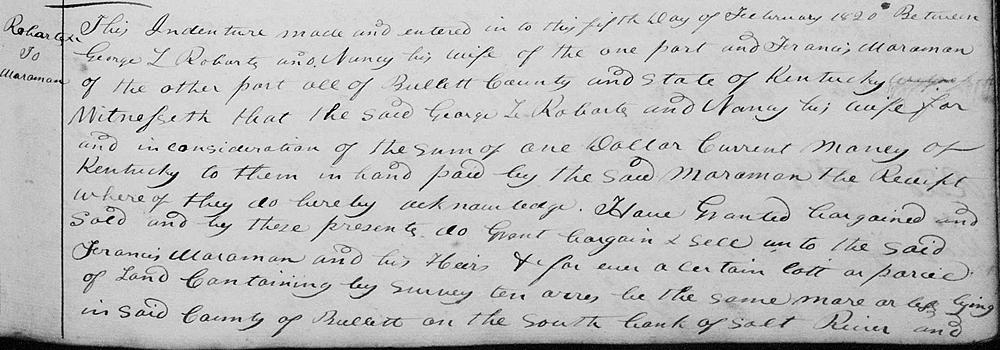 Robarts &c
To
Maraman
This Indenture made and entered in to this fifth Day of February 1820 Between
George L Robarts and Nancy his wife of the one part and Francis Maraman
of the other part all of Bullett County and State of Kentucky
Witnesseth that the said George L Robarts and Nancy his wife for
and in consideration of the sum of one Dollar Current Maney of
Kentucky to them in hand paid by the said Maraman the Receipt
whereof they do hereby acknowledge. Have Granted bargained and
Sold and by these presents do Grant bargain & sell unto the said
Francis Maraman and his Heirs &c for ever a certain lott or parcel
of Land Containing by survey ten acres be the same more or less lying
in said County of Bullett on the South bank of salt River and